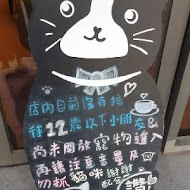 店內目前沒有接
待12歲以下小朋友&
尚未開放寵物進入
再請注意音量及
勿抓貓咪謝謝
配合